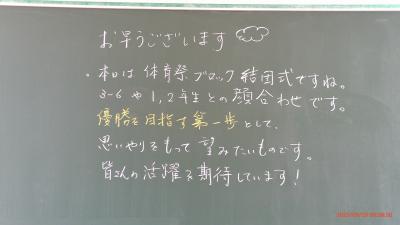 お早うございます
・本日は体育祭ブロック結団式ですね。
3-6や1,2年生との顔合わせです。
優勝を目指す第一歩として、
思いやりをもって望みたいものです。
皆さんの活躍を期待しています！